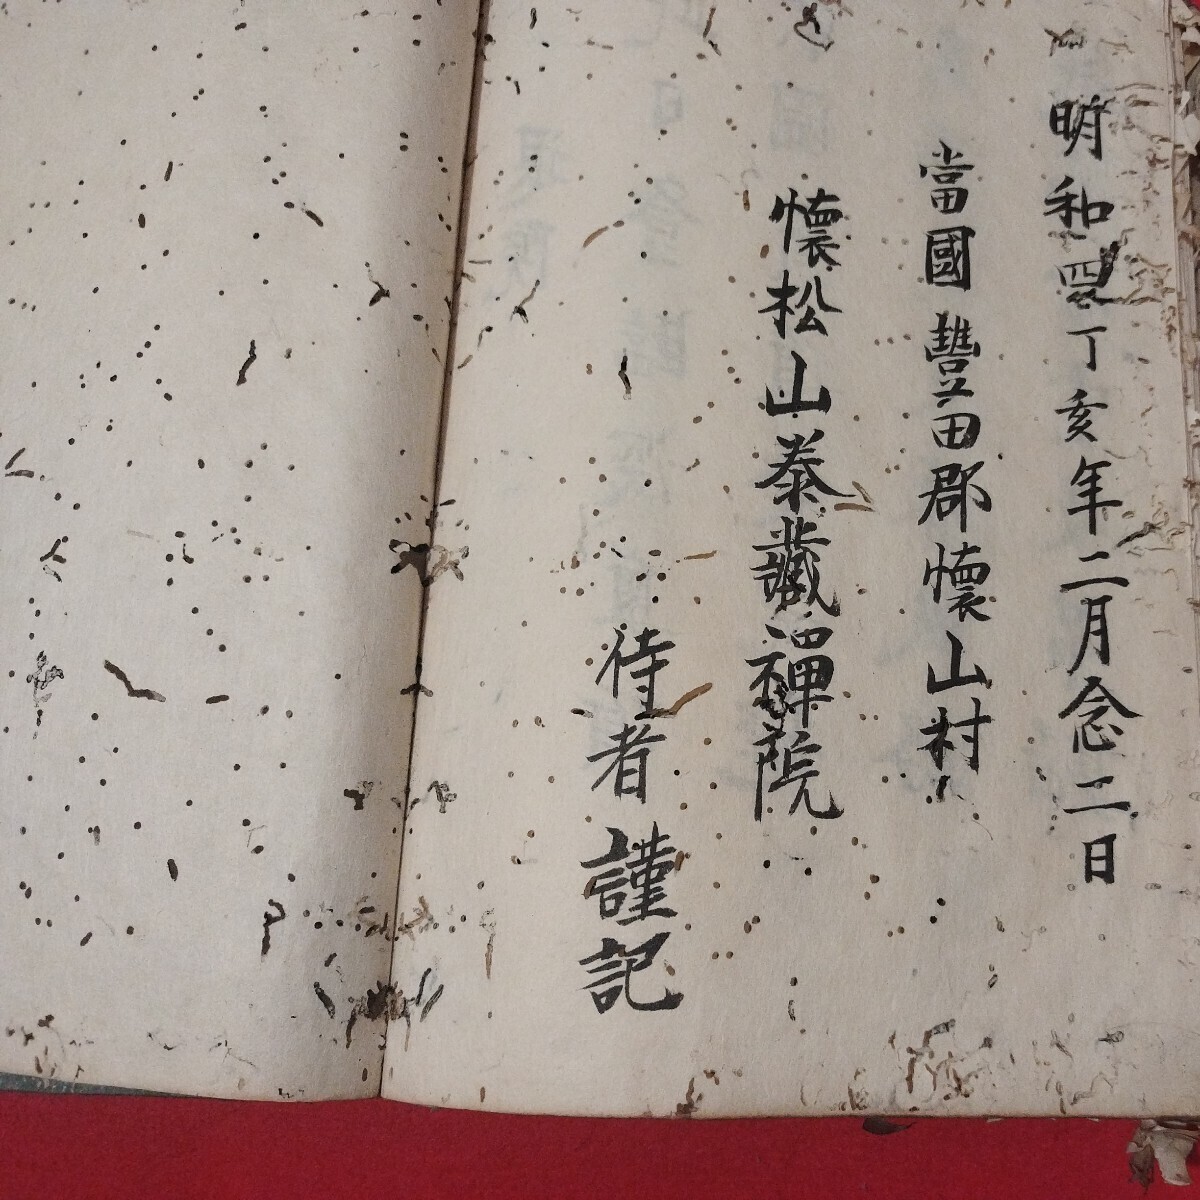 明和四丁亥年二月念二日
當國豐田郡懷山村
懷松山泰藏禪院
侍者謹記